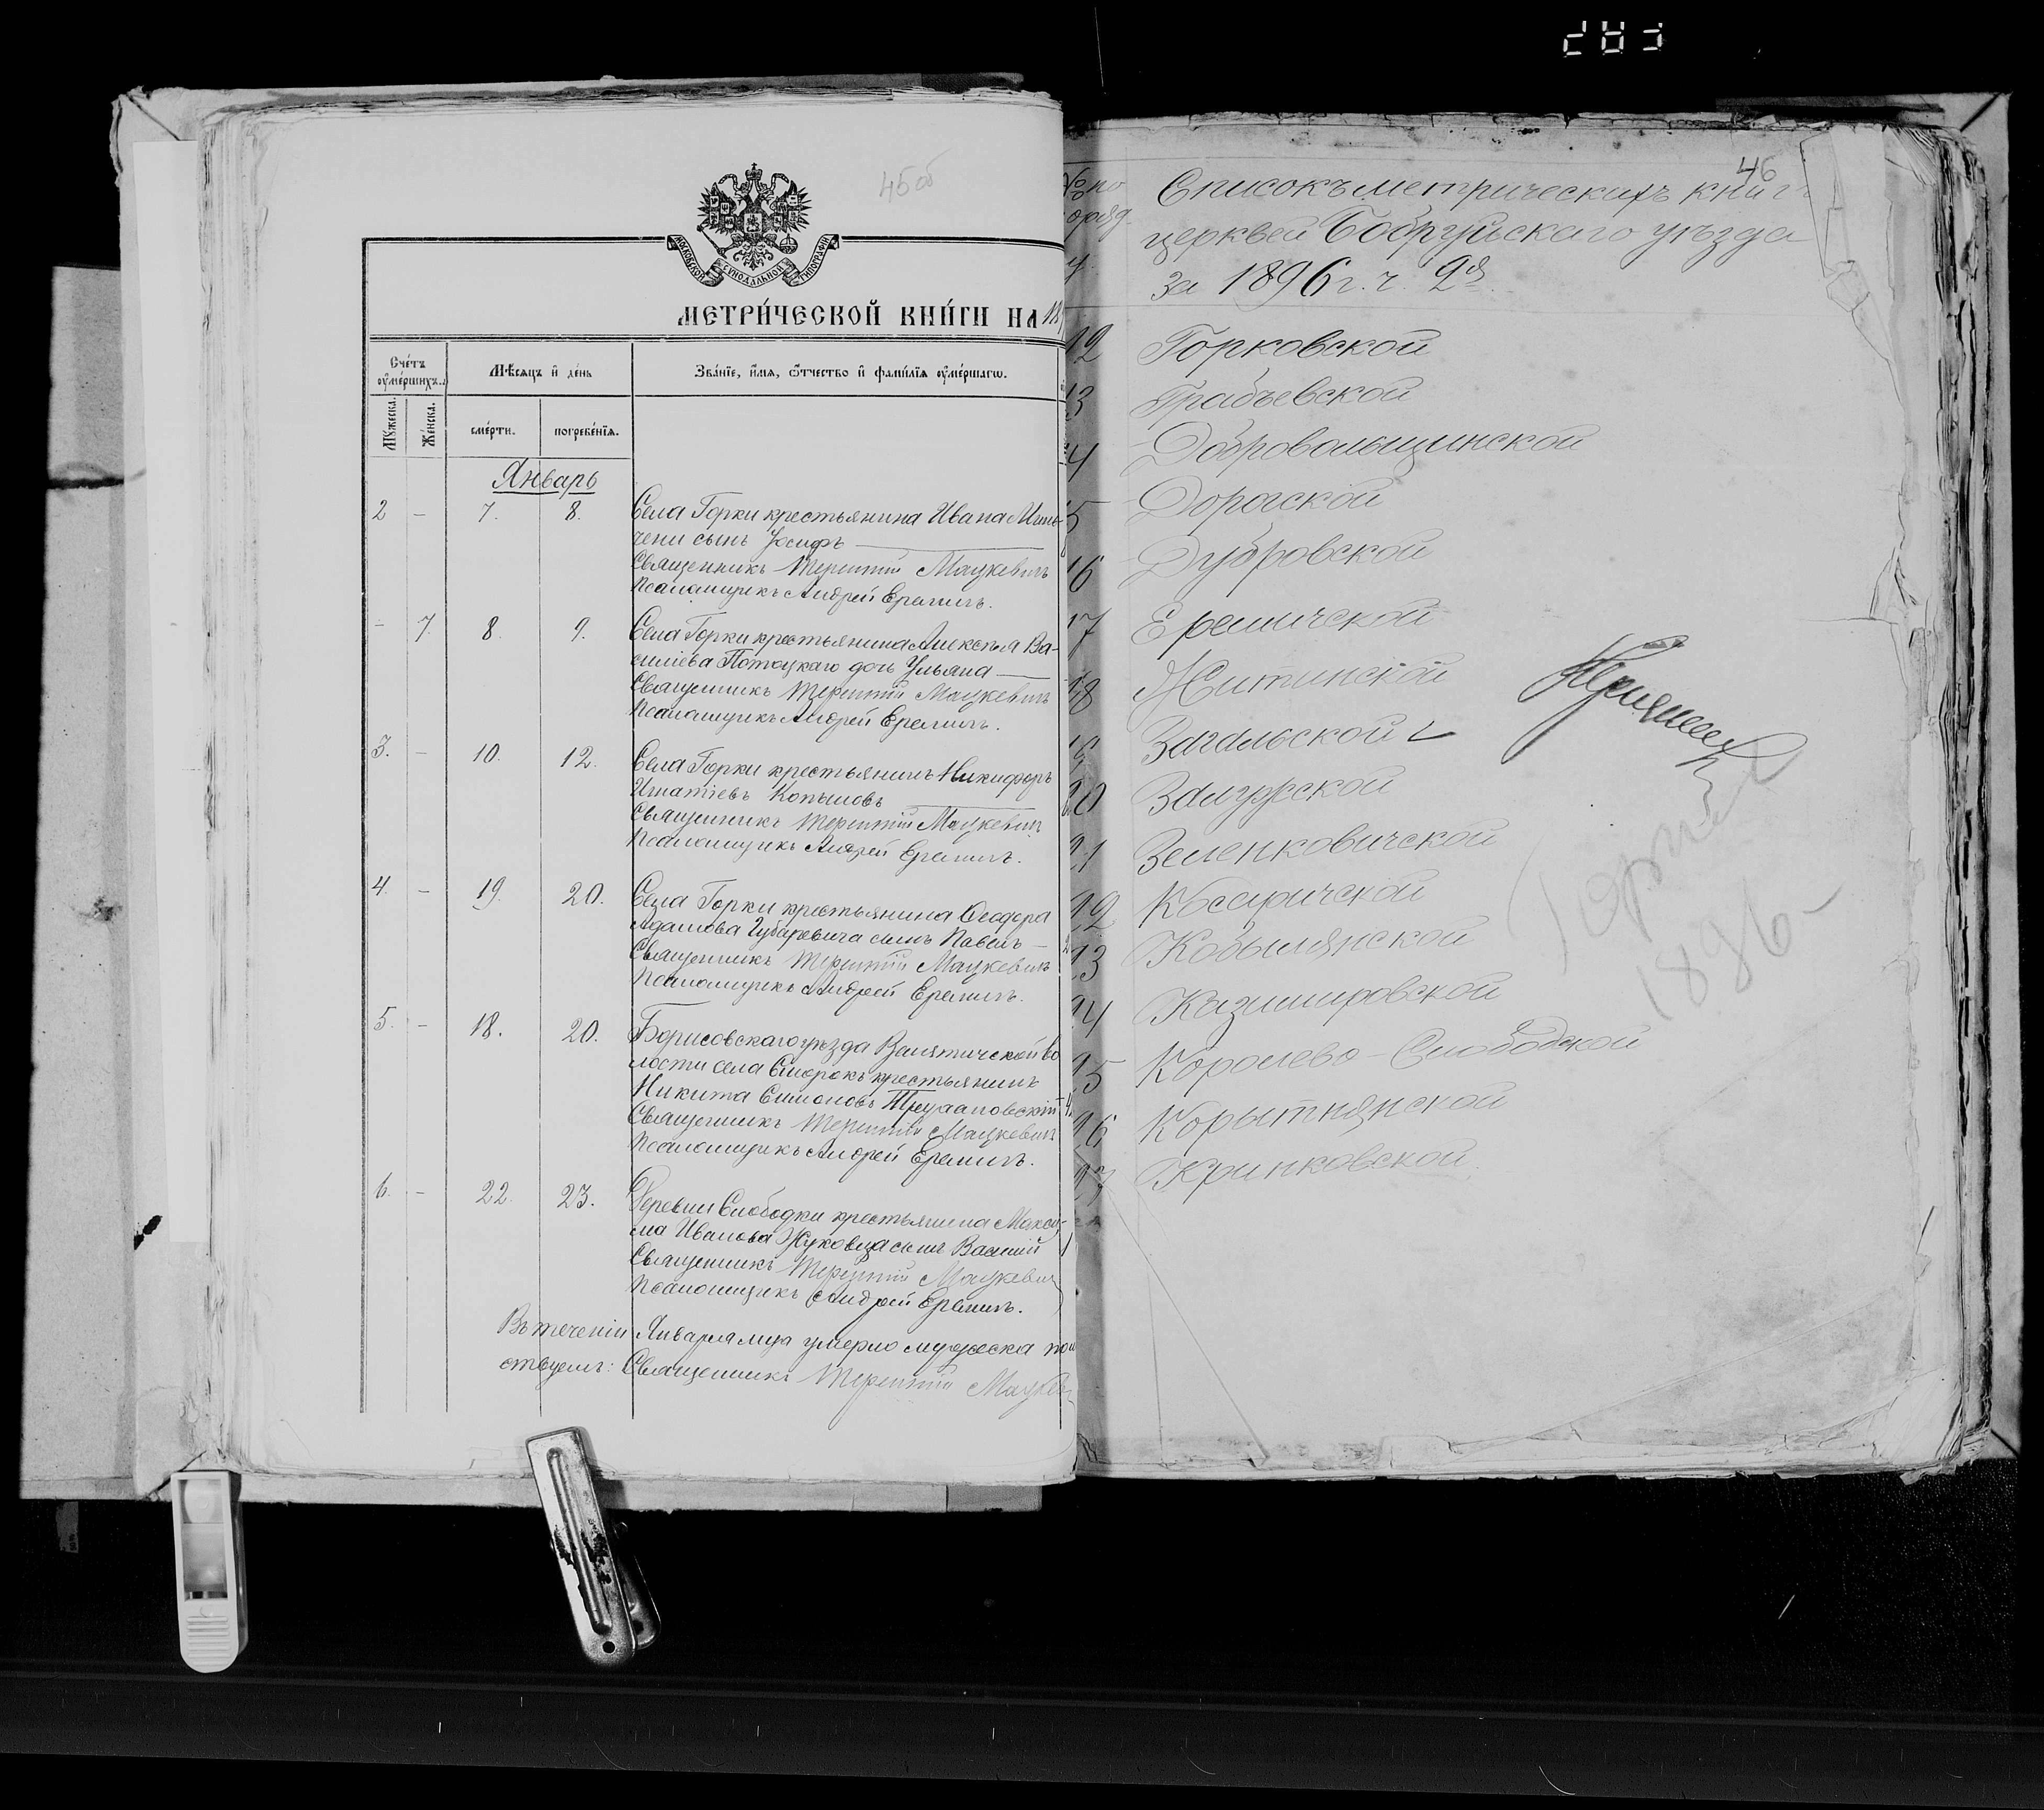 45об
МОСКОВСКОЙ СУНОДАЛЬНОЙ ТИПОГРАФІИ
МЕТРИ́ЧЕСКОЙ КНИ́ГИ НА
Сче́тъ оу҆ме́ршихъ.
Мѣ́сяцъ и҆ де́нь
Зва́нїе, и҆́мя, ѻ҆́тчество и҆ фами́лїя оу҆ме́ршагѡ.
Мꙋ́жеска.
Же́нска.
сме́рти.
погребе́нїя.
Январь
2 - 7. 8. Села Горки крестьянина Ивана
сынъ Іосифъ
Священникъ Терентій Мацкевичъ
Псаломщикъ Андрей Еремичъ.
- 7. 8. 9. Села Горки крестьянина Алексѣя Ва-
силіева Потоцкаго дочь Ульяна
Священникъ Терентій Мацкевичъ
Псаломщикъ Андрей Еремичъ.
3. - 10. 12. Села Горки крестьянинъ Никифоръ
Игнатіевъ Копыловъ
Священникъ Терентій Мацкевичъ
Псаломщикъ Андрей Еремичъ.
4. - 19. 20. Села Горки крестьянина Ѳеодора
Адамова Губаревича сынъ Павелъ
Священникъ Терентій Мацкевичъ
Псаломщикъ Андрей Еремичъ.
5. - 18. 20. Борисовскаго уѣзда Велятичской во
лости села крестьянинъ
Никита Симоновъ
Священникъ Терентій Мацкевичъ
Псаломщикъ Андрей Еремичъ.
6. - 22. 23. Деревни Слободки крестьянина Макси-
ма Иванова Жуковца сынъ Василій
Священникъ Терентій Мацкевич
Псаломщикъ Андрей Еремичъ.
Въ теченіи Января мца умерло мужеска пол
ствуемъ: Священникъ Терентій Мацкев
46
№ по
поряд.
Списокъ метрическихъ книгъ
церквей Бобруйскаго уѣзда
за 1896 г. ч. 2я.
12 Горковской
13 Грабьевской
14 Добровольщинской
15 Доросской
16 Дубровской
17 Еремичской
18 Житинской
19 Загальской
20 Залужской
21 Зеленковичской
22 Косаричской
23 Кобылянской
24 Казимировской
25 Королево-Слободской
26 Корытнянской
27 Кринковской
1896